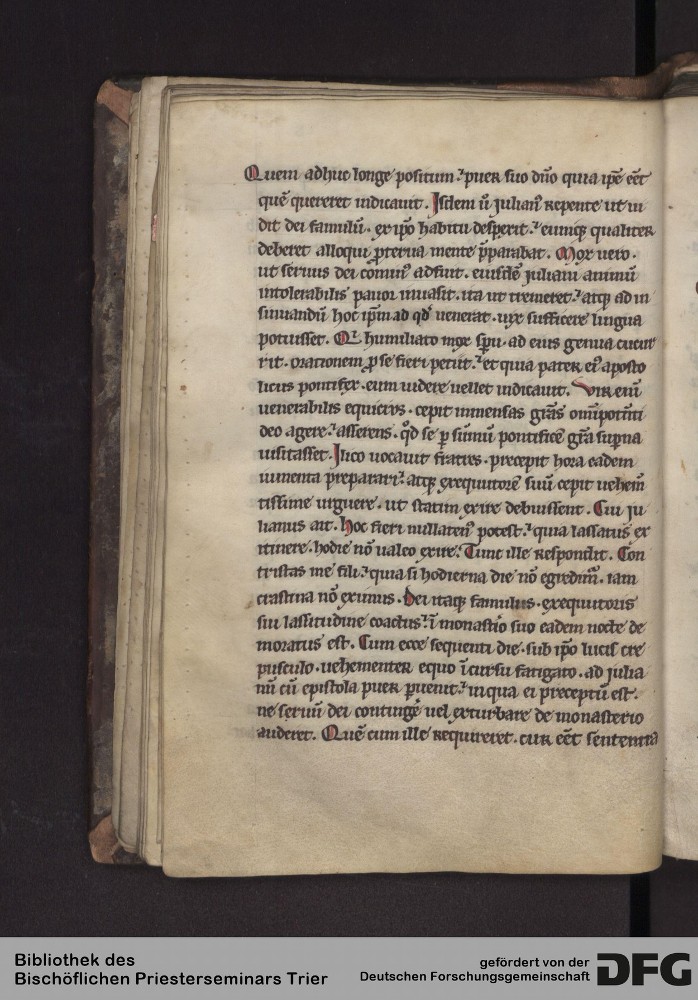 Quem adhuc longe positum. puer suo dn̄o quia ip̄e eēt
quē quereret indicauit. Isdem ū iulianꝰ repente ut ui
dit dei famulū. ex ip̄o habitu desperit. eumq; qualiter
deberet alloqui ꝓterua mente p̄parabat. Mox uero.
ut seruus dei cominꝰ adfuit. eiusdē iuliani animū
intolerabilis pauor inuasit. ita ut tremeret. atq; ad in
sinuandū hoc ip̄m ad qd̓ uenerat. uix sufficere lingua
potuisset. Q̓ humiliato mox sp̄u. ad eius genua cucur
rit. orationem ꝓ se fieri petiit. et quia pater eiꝰ aposto
licus pontifex. eum uidere uellet indicauit. Vir eni̅
uenerabilis equicius. cepit inmensas gr̄as om̄ipotenti
deo agere. asserens. qd̓ se ꝑ sum̄ū pontificē gr̄a suꝑna
uisitasset. Ilico uocauit fratres. precepit hora eadem
iumenta preparari. atq; exequutorē suū cepit uehem̄
tissime urguere. ut statim exire debuissent. Cui iu
lianus ait. hoc fieri nullatenꝰ potest. quia lassatus ex
itinere. hodie nō ualeo exire. Tunc ille respondit. Con
tristas me fili. quia si hodierna die nō egredim̄. iam
crastina nō eximus. Dei itaq; famulus. exequutoris
sui lassitudine coactus. ī monastio suo eadem nocte de
moratus est. Cum ecce sequenti die. sub ip̄o lucis cre
pusculo. uehementer equo ī cursu fatigato. ad iulia
nū cū epistola puer ꝑuenit. in qua ei preceptū est.
ne seruū dei contingē uel exturbare de monasterio
auderet. Quē cum ille requireret. cur eēt sententia
Bibliothek des
Bischöflichen Priesterseminars Trier
gefördert von der
Deutschen Forschungsgemeinschaft
DFG